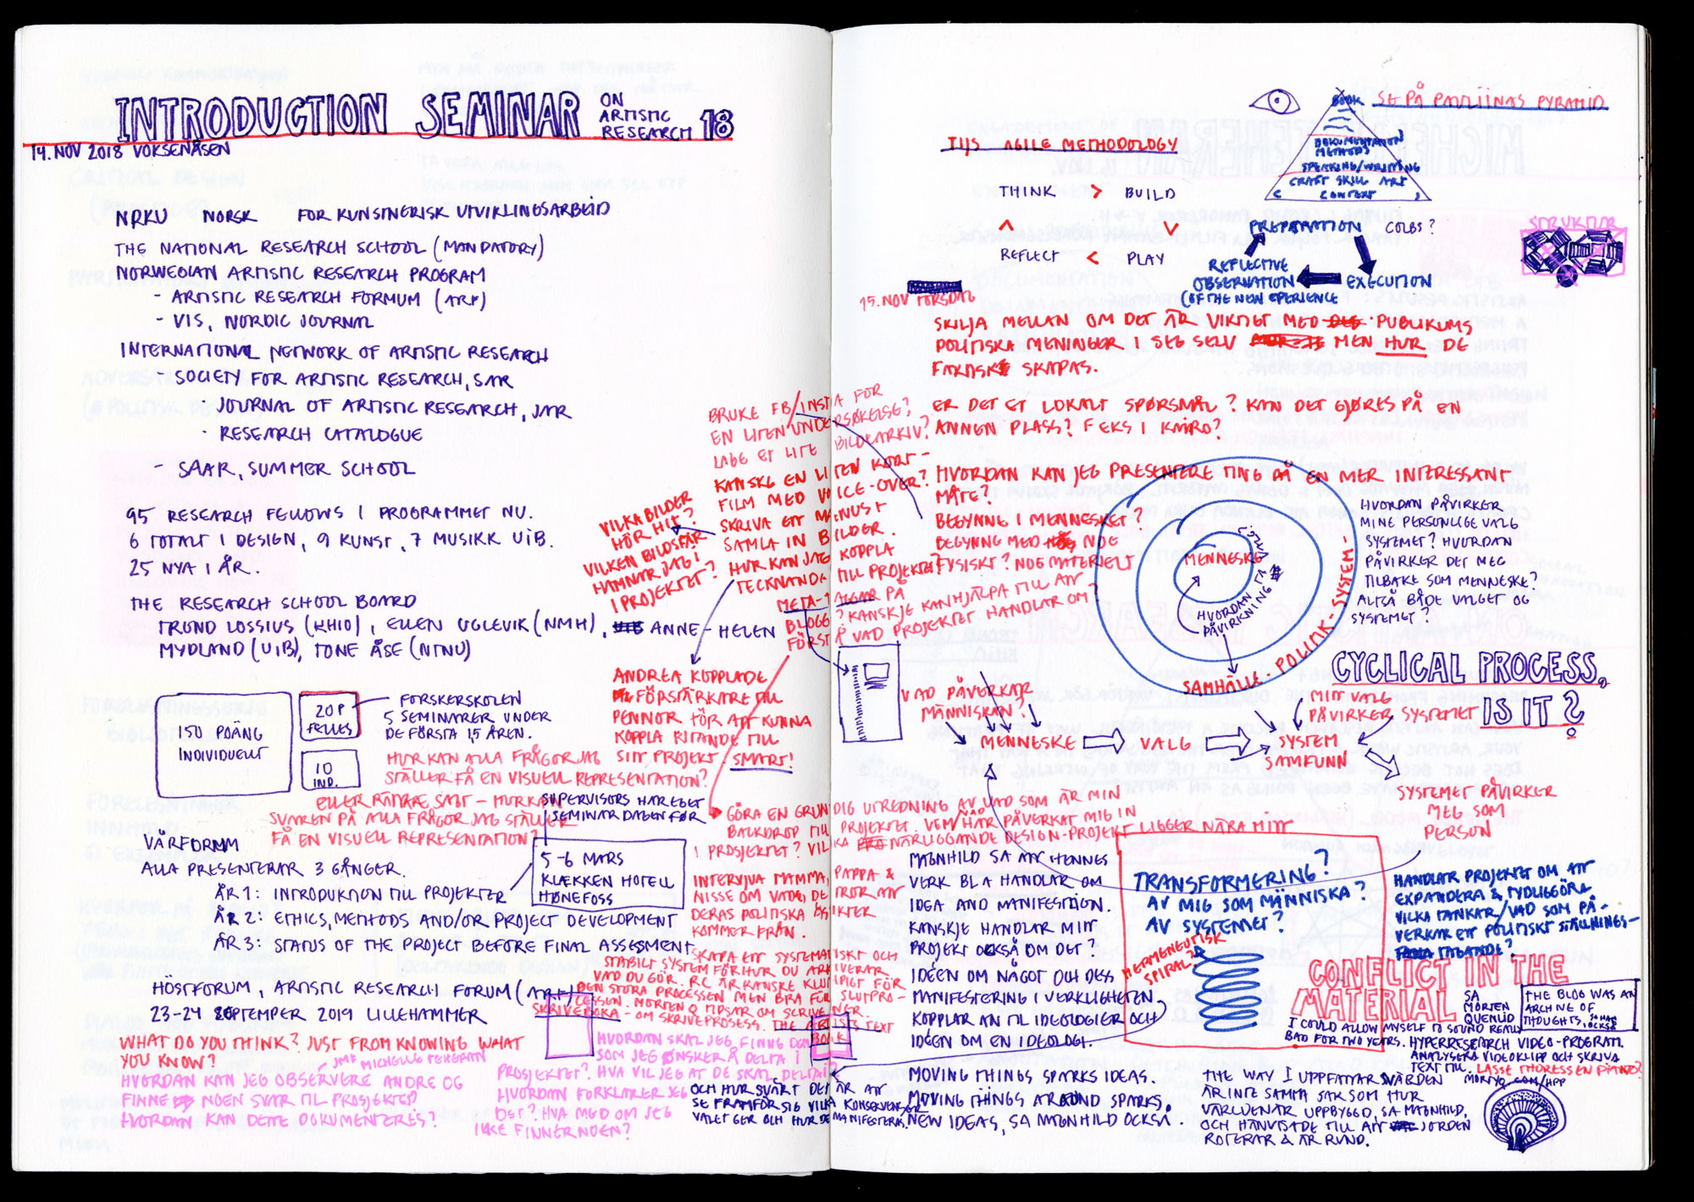 INTRODUCTION SEMINAR ON ARTISTIC RESEARCH 18
14. NOV 2018 VOKSENÅSEN
NRKU NORSK FOR KUNSTNERISK UTVIKLINGSARBEID
THE NATIONAL RESEARCH SCHOOL (MANDATORY)
NORWEGIAN ARTISTIC RESEARCH PROGRAM
- ARTISTIC RESEARCH FORMUM (ARF)
- VIS, NORDIC JOURNAL
INTERNATIONAL NETWORK OF ARTISTIC RESEARCH
- SOCIETY FOR ARTISTIC RESEARCH, SAR
· JOURNAL OF ARTISTIC RESEARCH, JAR
· RESEARCH CATALOGUE
- SAAR, SUMMER SCHOOL
95 RESEARCH FELLOWS I PROGRAMMET NU.
6 TOTALT I DESIGN, 9 KUNST, 7 MUSIKK UiB.
25 NYA I ÅR.
THE RESEARCH SCHOOL BOARD
TROND LOSSIUS (KHIO), ELLEN UGELVIK (NMH), ANNE-HELEN
MYDLAND (UiB), TONE ÅSE (NTNU)
150 POÄNG
INDIVIDUELLT
20 P
FELLES
10
IND.
FORSKERSKOLEN
5 SEMINARER UNDER
DE FÖRSTA 1,5 ÅREN.
HUR KAN ALLA FRÅGOR JAG
STÄLLER FÅ EN VISUELL REPRESENTATION?
ELLER RÄTTARE SAGT - HUR KAN
SVAREN PÅ ALLA FRÅGOR JAG STÄLLER
FÅ EN VISUELL REPRESENTATION?
SUPERVISORS HAR EGET
SEMINAR DAGEN FØR
VÅRFORUM
ALLA PRESENTERAR 3 GÅNGER.
ÅR 1: INTRODUKTION TIL PROJEKTER
ÅR 2: ETHICS, METHODS AND/OR PROJECT DEVELOPMENT
ÅR 3: STATUS OF THE PROJECT BEFORE FINAL ASSESSMENT
5-6 MARS
KLÆKKEN HOTELL
HØNEFOSS
HÖSTFORUM, ARTISTIC RESEARCH FORUM (ARF)
23-24 SEPTEMBER 2019 LILLEHAMMER
WHAT DO YOU THINK? JUST FROM KNOWING WHAT
YOU KNOW?
JMF MICHELLE TEHERAN
HVORDAN KAN JEG OBSERVERE ANDRE OG
FINNE NOEN SVAR TIL PROSJEKTET?
HVORDAN KAN DETTE DOKUMENTERES?
BRUKE FB/INSTA FOR
EN LITEN UNDERSØKELSE?
LAGE ET LITE BILDEARKIV?
KANSKE EN LITEN KORT-
FILM MED VOICE-OVER?
SKRIVA ETT MANUS?
SAMLA IN BILDER.
HUR KAN JAG KOPPLA
TECKNANDE TILL PROJEKTET?
META-TAGGAR PÅ
BLOGG? KANSKJE KAN HJÄLPA TILL ATT
FÖRSTÅ VAD PROJEKTET HANDLAR OM
VILKA BILDER
HÖR HIT?
VILKEN BILDSFÄR
HAMNAR JAG I
I PROJEKTET?
ANDREA KOPPLADE
FÖRSTÄRKARE TILL
PENNOR FÖR ATT KUNNA
KOPPLA RITANDE TILL
SITT PROJEKT. SMART!
GÖRA EN GRUNDIG UTREDNING AV VAD SOM ÄR MIN
BACKDROP TIL PROJEKTET. VEM/HAR PÅVERKAT MIG IN
I PROSJEKTET? VILKA NÄRLIGGANDE DESIGN-PROJEKT LIGGER NÄRA MITT
INTERVJUA MAMMA, PAPPA &
NISSE OM VAD DE TROR ATT
DERAS POLITISKA ÅSIKTER
KOMMER FRÅN.
SKAPA ETT SYSTEMATISKT OCH
STABILT SYSTEM FÖR HUR DU ARKIVERAR
VAD DU GÖR. RC ÄR KANSKE KLUMPIGT FÖR
DEN STORA PROCESSEN MEN BRA FÖR SLUTPRO-
CESSEN. MORTEN Q TIPSAR OM SCRIVENER.
SKRIVEBOKA - OM SKRIVEPROSESS. THE ARTIST'S TEXT
BOOK
HVORDAN SKAL JEG FINNE DEM
SOM JEG ØNSKER Å DELTA I
PROSJEKTET? HVA VIL JEG AT DE SKAL DELTA I
HVORDAN FORKLARER JEG
DET? HVA MED OM JEG
IKKE FINNER NOEN?
OCH HUR SVÅRT DET ÄR ATT
SE FRAMFÖR SIG VILKA KONSEKVENSER
VALET GER OCH HUR DE MANIFESTERAS,
TIJS AGILE METHODOLOGY
THINK > BUILD
REFLECT < PLAY
BOOK
SE PÅ PAULIINAS PYRAMID
DOKUMENTATION
METHODS
SPEAKING/WRITING
CRAFT SKILL ART
CONTEXT
PREPARATION
COLBS?
EXECUTION
REFLECTIVE
OBSERVATION
(OF THE NEW EPERIENCE
STRUKTUR
15. NOV TORSDAG
SKILJA MELLAN OM DET ÄR VIKTIGT MED PUBLIKUMS
POLITISKA MENINGER I SEG SELV MEN HUR DE
FAKTISKE SKAPAS.
ER DET ET LOKALT SPØRSMÅL? KAN DET GJØRES PÅ EN
ANNEN PLASS? F.EKS I KAIRO?
HVORDAN KAN JEG PRESENTERE TING PÅ EN MER INTERESSANT
MÅTE?
BEGYNNE I MENNESKET?
BEGYNNE MED NOE
FYSISKT? NOE MATERIELT
MENNESKE
HVORDAN PÅVIRKNING
SAMHÄLLE
POLITIK-SYSTEM-
HVORDAN PÅVIRKER
MINE PERSONLIGE VALG
SYSTEMET? HVORDAN
PÅVIRKER DET MEG
TILBAKE SOM MENNESKE?
ALTSÅ BÅDE VALGET OG
SYSTEMET?
CYCLICAL PROCESS,
IS IT?
VAD PÅVERKAR
MÄNNISKAN?
MENNESKE
VALG
SYSTEM
SAMFUNN
MITT VALG
PÅVIRKER SYSTEMET
SYSTEMET PÅVIRKER
MEG SOM
PERSON
MAGNHILD SA ATT HENNES
VERK BL A HANDLAR OM
IDEA AND MANIFESTION.
KANSKJE HANDLAR MITT
PROJEKT OCKSÅ OM DET?
IDÉEN OM NÅGOT OCH DESS
MANIFESTERING I VERKLIGHETEN.
KOPPLAR AN TIL IDEOLOGIER OCH
IDÉEN OM EN IDEOLOGI.
MOVING THINGS SPARKS IDEAS.
MOVING THINGS AROUND SPARKS
NEW IDEAS, SA MAGNHILD OCKSÅ.
TRANSFORMERING?
AV MIG SOM MÄNNISKA?
AV SYSTEMET?
HERMENEUTISK
SPIRAL?
HANDLAR PROJEKTET OM ATT
EXPANDERA & TYDLIGGÖRA
VILKA TANKAR/VAD SOM PÅ-
VERKAR ETT POLITISKT STÄLLNINGS-
TAGANDE?
CONFLICT IN THE
MATERIAL
SA
MORTEN
QUENLID
THE BLOG WAS AN
ARCHIVE OF
THOUGHTS, SA HAN
OCKSÅ
I COULD ALLOW MYSELF TO SOUND REALLY
BAD FOR TWO YEARS.
HYPERRESEARCH VIDEO-PROGRAM.
ANALYSERA VIDEOKLIPP OCH SKRIVA
TEXT TIL.
THE WAY I UPPFATTAR VÄRDEN
ÄR INTE SAMMA SAK SOM HUR
VÄRLDEN ÄR UPPBYGGD, SA MAGNHILD,
OCH HÄNVISADE TILL ATT JORDEN
ROTERAR & ÄR RUND.